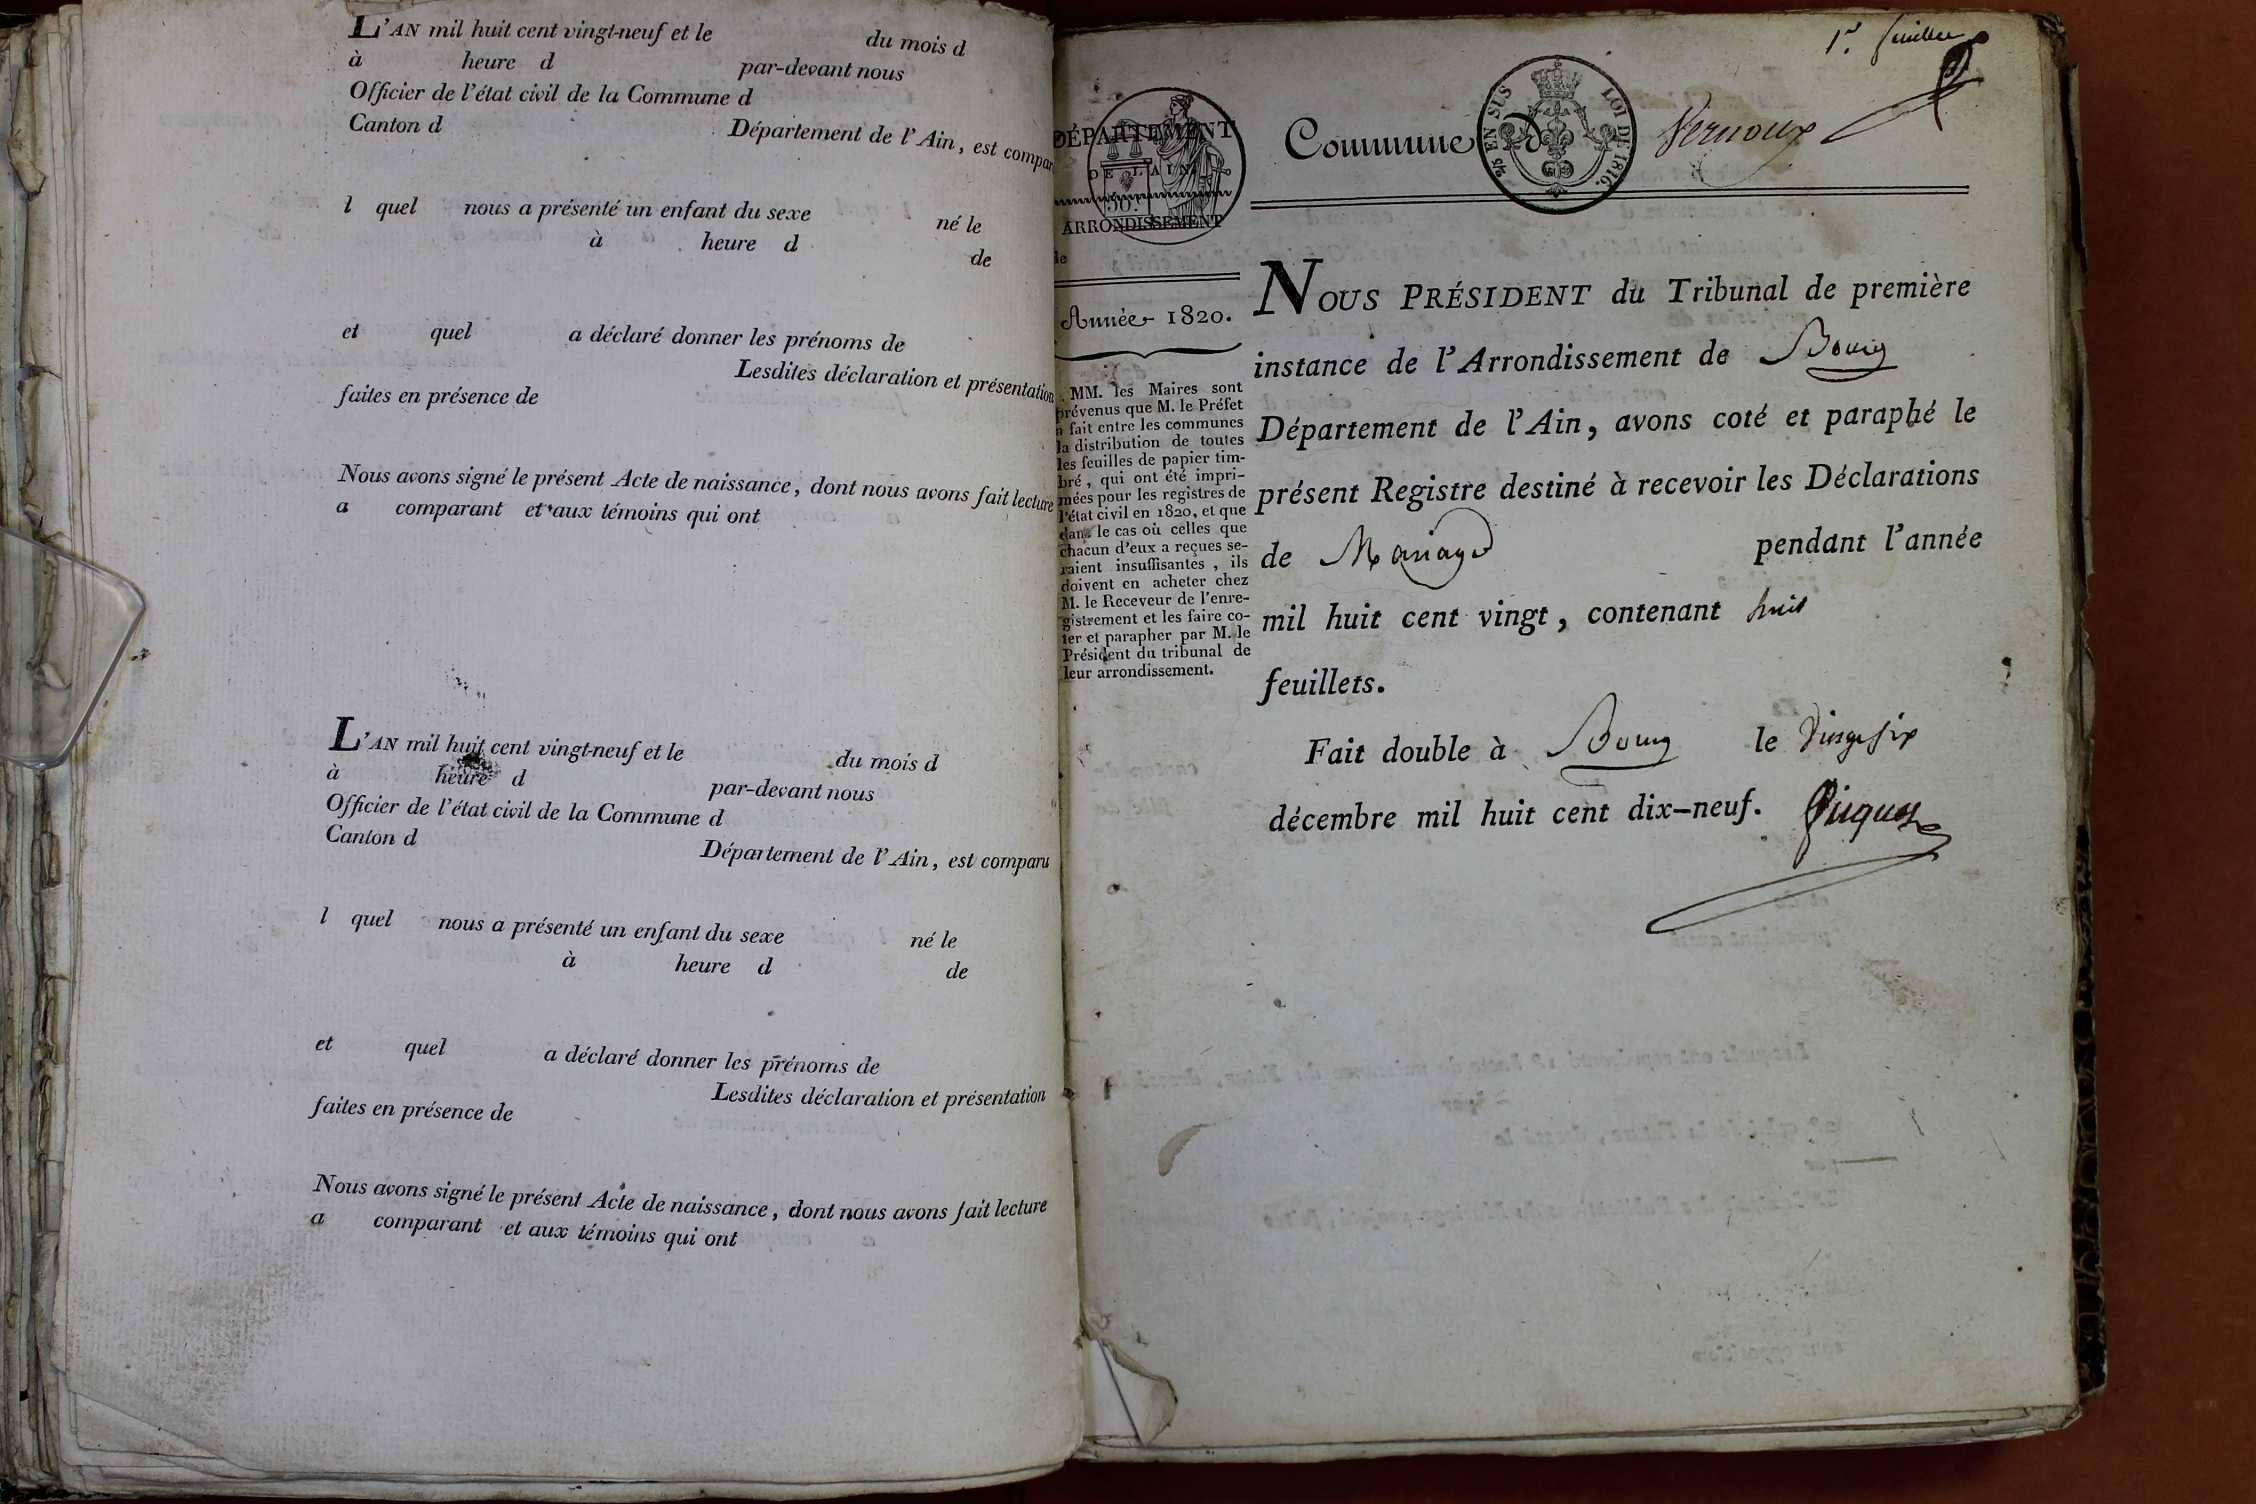 L'AN mil huit cent vingt-neuf et le du mois d
à heure d par-devant nous
Officier de l'état civil de la Commune d
Canton d Département de l'Ain, est compar
l quel nous a présenté un enfant du sexe né le
à heure d de
et quel a déclaré donner les prénoms de
Lesdites déclaration et présentation
faites en présence de
Nous avons signé le présent Acte de naissance, dont nous avons fait lecture
a comparant et aux témoins qui ont
L'AN mil huit cent vingt-neuf et le du mois d
à heure d par-devant nous
Officier de l'état civil de la Commune d
Canton d Département de l'Ain, est comparu
l quel nous a présenté un enfant du sexe né le
à heure d de
et quel a déclaré donner les prénoms de
Lesdites déclaration et présentation
faites en présence de
Nous avons signé le présent Acte de naissance, dont nous avons fait lecture
a comparant et aux témoins qui ont
1r. feuillet
DÉPARTEMENT
DE L'AIN.
ARRONDISSEMENT
de
Année 1820.
MM. les Maires sont
prévenus que M. le Préfet
a fait entre les communes
la distribution de toutes
les feuilles de papier tim-
bré, qui ont été impri-
mées pour les registres de
l'état civil en 1820, et que
dans le cas où celles que
chacun d'eux a reçues se-
raient insuffisantes, ils
doivent en acheter chez
M. le Receveur de l'enre-
gistrement et les faire co-
ter et parapher par M. le
Président du tribunal de
leur arrondissement.
Commune d Vernoux
EN SUS LOI DE 1816.
NOUS PRÉSIDENT du Tribunal de première
instance de l'Arrondissement de Bourg
Département de l'Ain, avons coté et paraphé le
présent Registre destiné à recevoir les Déclarations
de Mariage pendant l'année
mil huit cent vingt, contenant huit
feuillets.
Fait double à Bourg le vingt six
décembre mil huit cent dix-neuf.